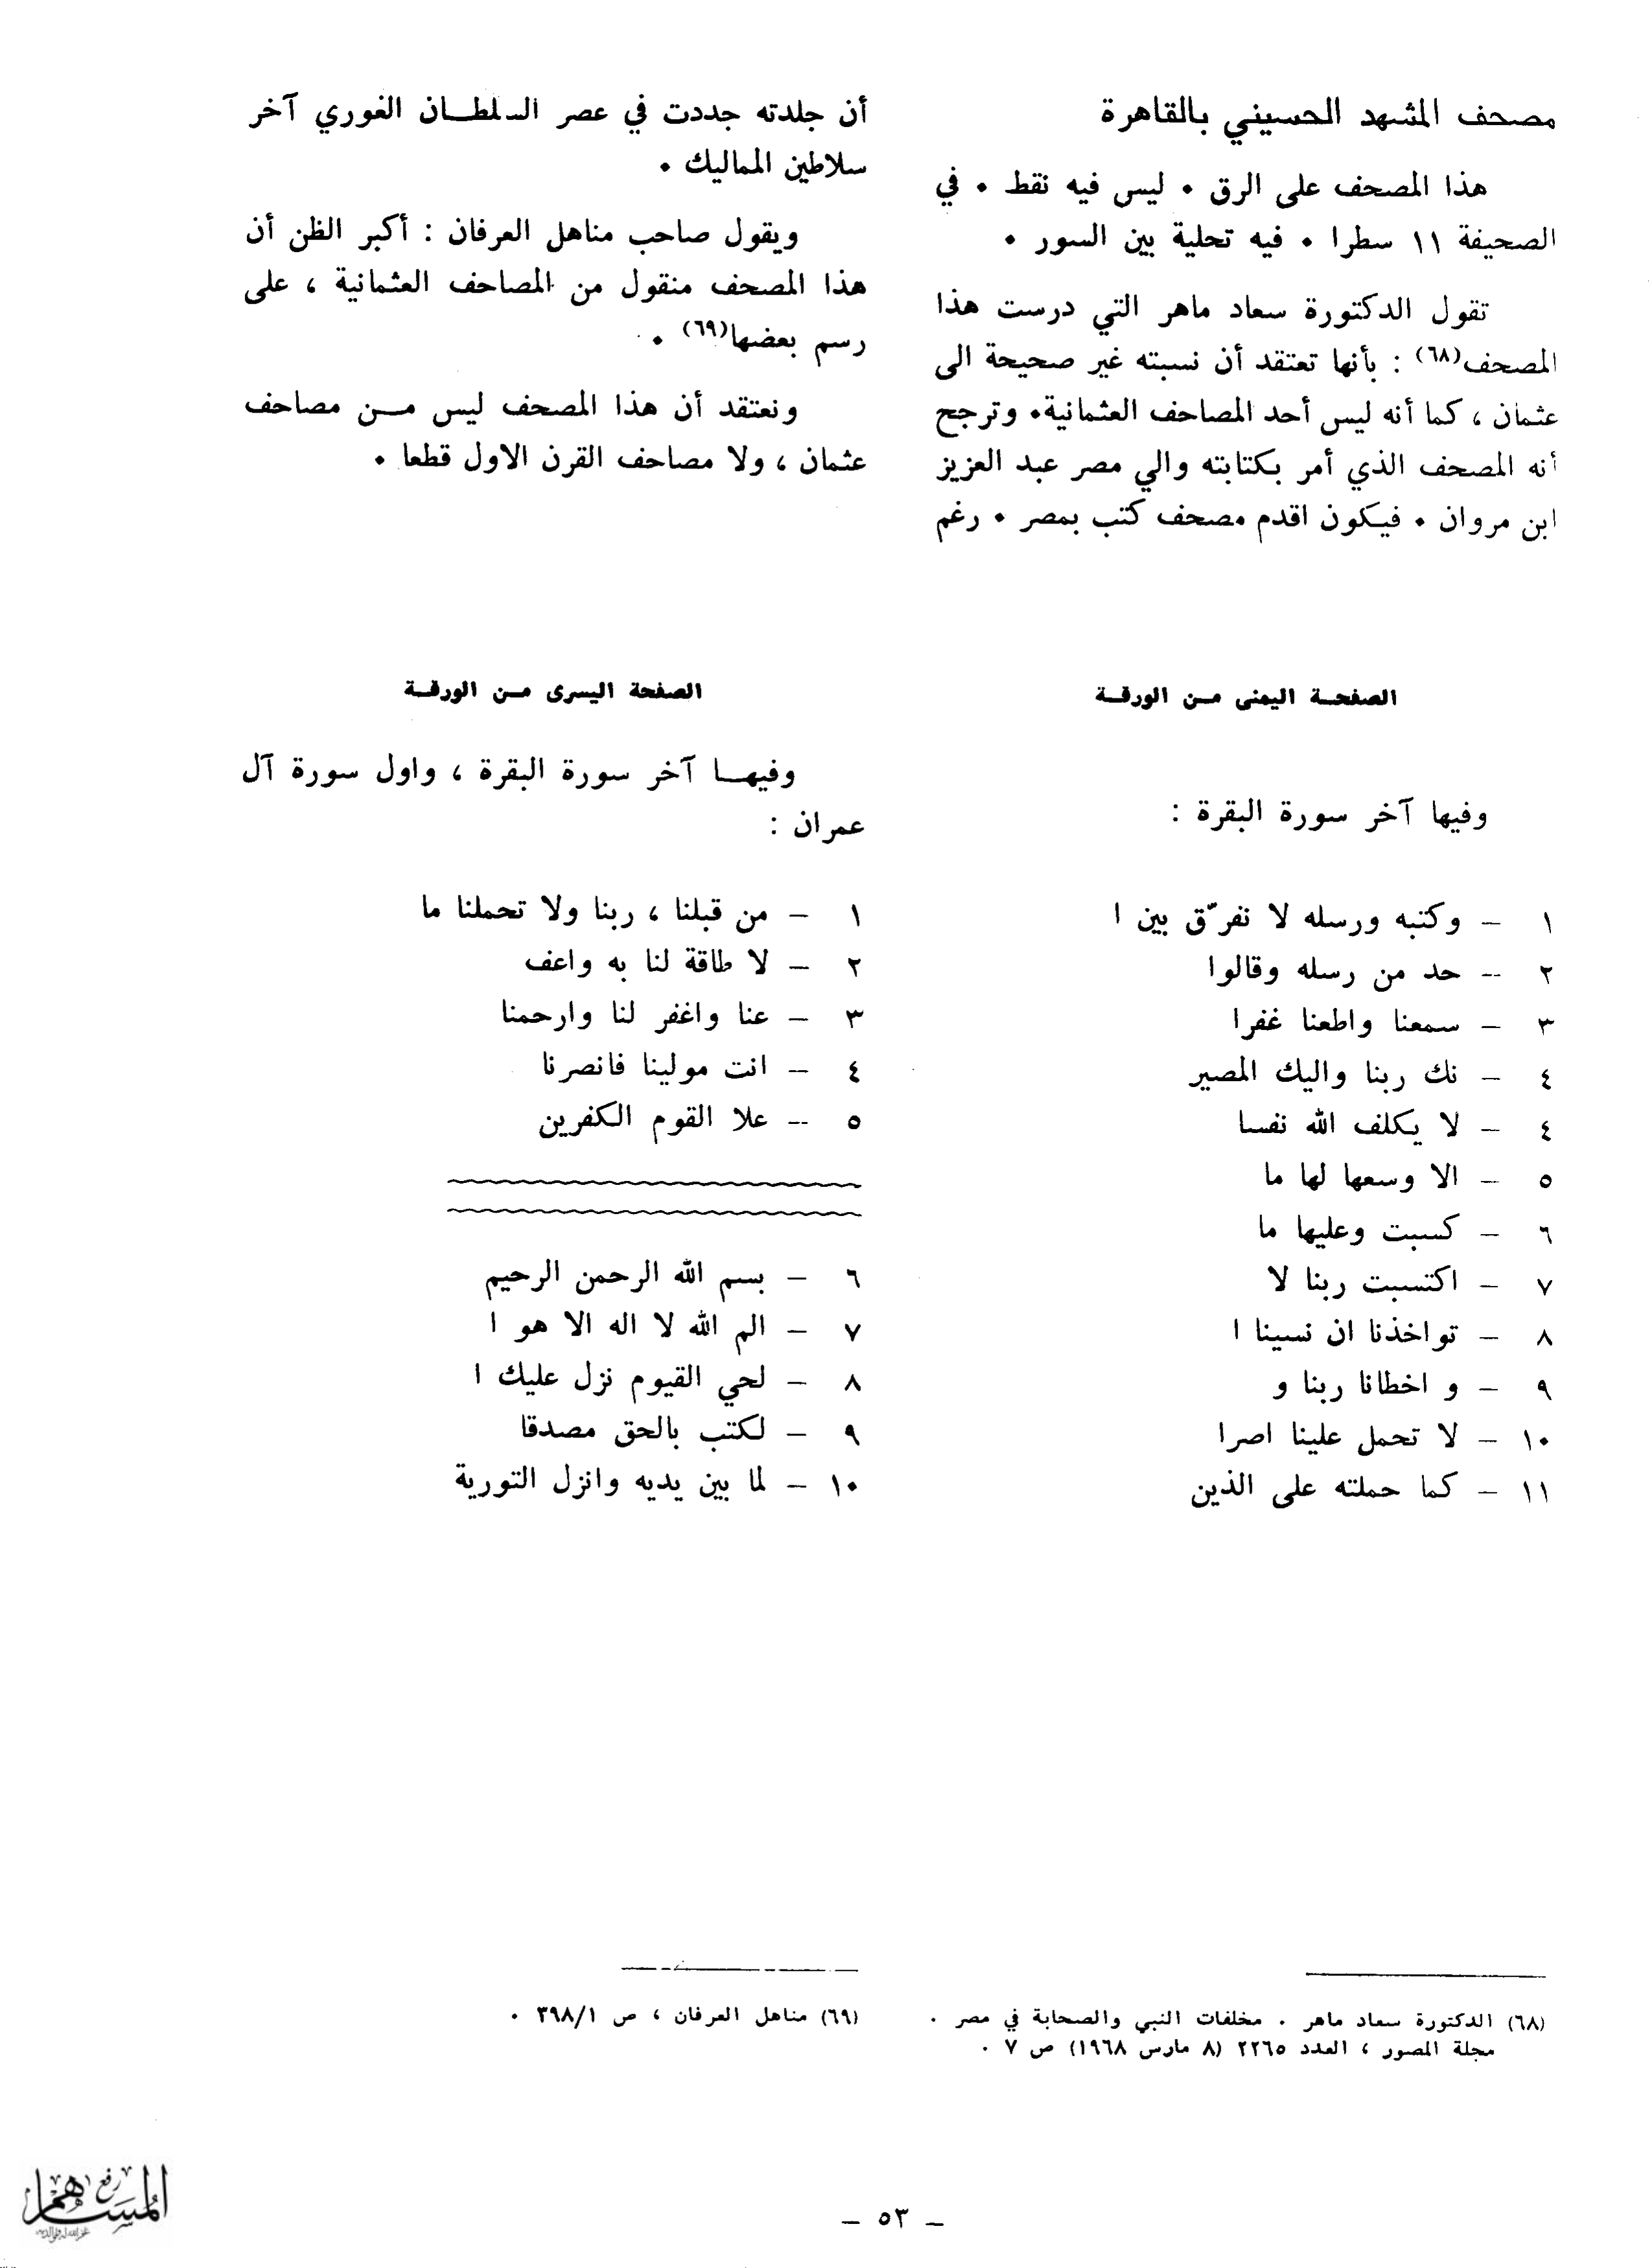 مصحف المشهد الحسيني بالقاهرة
هذا المصحف على الرق . ليس فيه نقط . في
الصحيفة ١١ سطرا . فيه تحلية بين السور .
تقول الدكتورة سعاد ماهر التي درست هذا
المصحف(٦٨) : بأنها تعتقد أن نسبته غير صحيحة الى
عثمان ، كما أنه ليس أحد المصاحف العثمانية. وترجح
أنه المصحف الذي أمر بكتابته والي مصر عبد العزيز
ابن مروان . فيكون اقدم مصحف كتب بمصر . رغم
أن جلدته جددت في عصر السلطان الغوري آخر
سلاطين المماليك .
ويقول صاحب مناهل العرفان : أكبر الظن أن
هذا المصحف منقول من المصاحف العثمانية ، على
رسم بعضها(٦٩) .
ونعتقد أن هذا المصحف ليس من مصاحف
عثمان ، ولا مصاحف القرن الاول قطعا .
الصفحة اليمنى من الورقة
وفيها آخر سورة البقرة :
١ – وكتبه ورسله لا نفرّق بين ا
٢ – حد من رسله وقالوا
٣ – سمعنا واطعنا غفرا
٤ – نك ربنا واليك المصير
٤ – لا يكلف الله نفسا
٥ – الا وسعها لها ما
٦ – كسبت وعليها ما
٧ – اكتسبت ربنا لا
٨ – تواخذنا ان نسينا ا
٩ – و اخطانا ربنا و
١٠ – لا تحمل علينا اصرا
١١ – كما حملته على الذين
الصفحة اليسرى من الورقة
وفيها آخر سورة البقرة ، واول سورة آل
عمران :
١ – من قبلنا ، ربنا ولا تحملنا ما
٢ – لا طاقة لنا به واعف
٣ – عنا واغفر لنا وارحمنا
٤ – انت مولينا فانصرنا
٥ – علا القوم الكفرين
٦ – بسم الله الرحمن الرحيم
٧ – الم الله لا اله الا هو ا
٨ – لحي القيوم نزل عليك ا
٩ – لكتب بالحق مصدقا
١٠ – لما بين يديه وانزل التورية
(٦٨) الدكتورة سعاد ماهر . مخلفات النبي والصحابة في مصر .
مجلة المصور ، العدد ٢٢٦٥ (٨ مارس ١٩٦٨) ص ٧ .
(٦٩) مناهل العرفان ، ص ٣٩٨/١ .
– ٥٣ –
رفع
المساهم